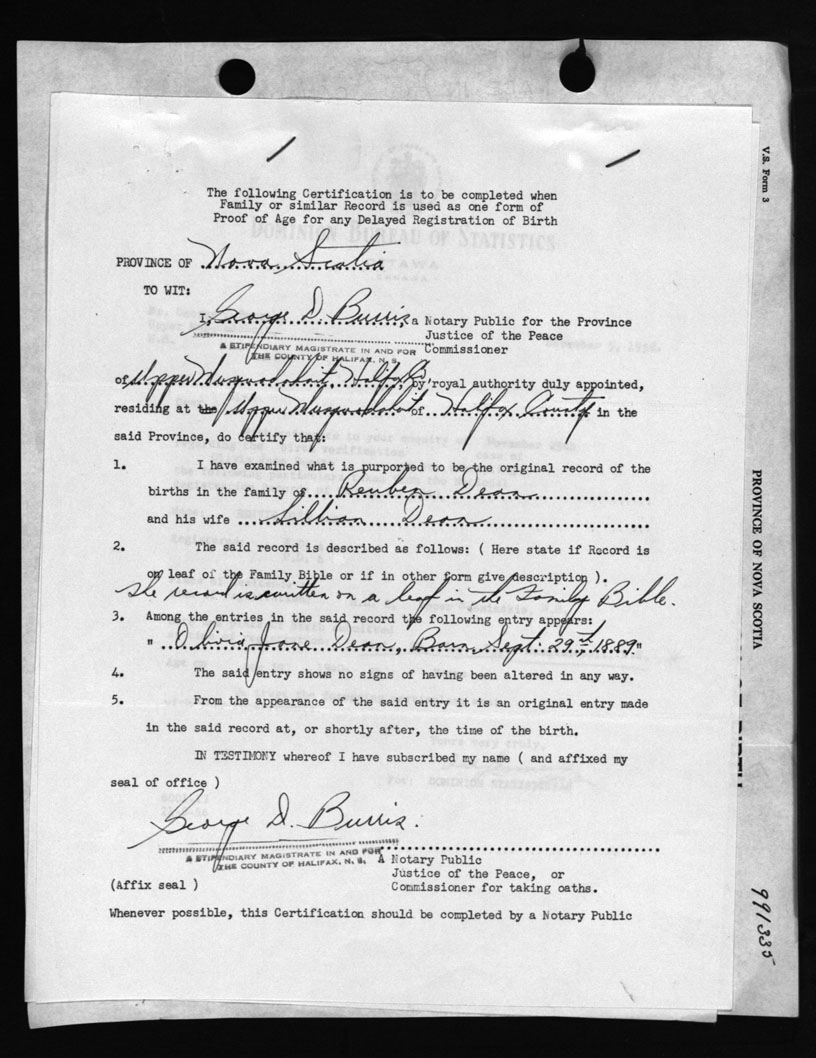 The following Certification is to be completed when
Family or similar Record is used as one form of
Proof of Age for any Delayed Registration of Birth
DOMINION BUREAU OF STATISTICS
OTTAWA
CANADA
PROVINCE OF Nova Scotia
TO WIT:
I, George D. Burris, a Notary Public for the Province
Justice of the Peace
A STIPENDIARY MAGISTRATE IN AND FOR Commissioner
THE COUNTY OF HALIFAX, N. S.
of Upper Musquodoboit, Halifax, by royal authority duly appointed,
residing at the Upper Musquodoboit of Halifax County in the
said Province, do certify that:
1. I have examined what is purported to be the original record of the
births in the family of Reuben Dean
and his wife Lillian Dean
2. The said record is described as follows: ( Here state if Record is
on leaf of the Family Bible or if in other form give description ).
The record is written on a leaf in the Family Bible.
3. Among the entries in the said record the following entry appears:
" Olivia Jane Dean, Born Sept. 29th, 1889"
4. The said entry shows no signs of having been altered in any way.
5. From the appearance of the said entry it is an original entry made
in the said record at, or shortly after, the time of the birth.
IN TESTIMONY whereof I have subscribed my name ( and affixed my
seal of office )
George D. Burris.
A STIPENDIARY MAGISTRATE IN AND FOR
THE COUNTY OF HALIFAX, N. S. A Notary Public
Justice of the Peace, or
(Affix seal ) Commissioner for taking oaths.
Whenever possible, this Certification should be completed by a Notary Public
V.S. Form 3
PROVINCE OF NOVA SCOTIA
991335